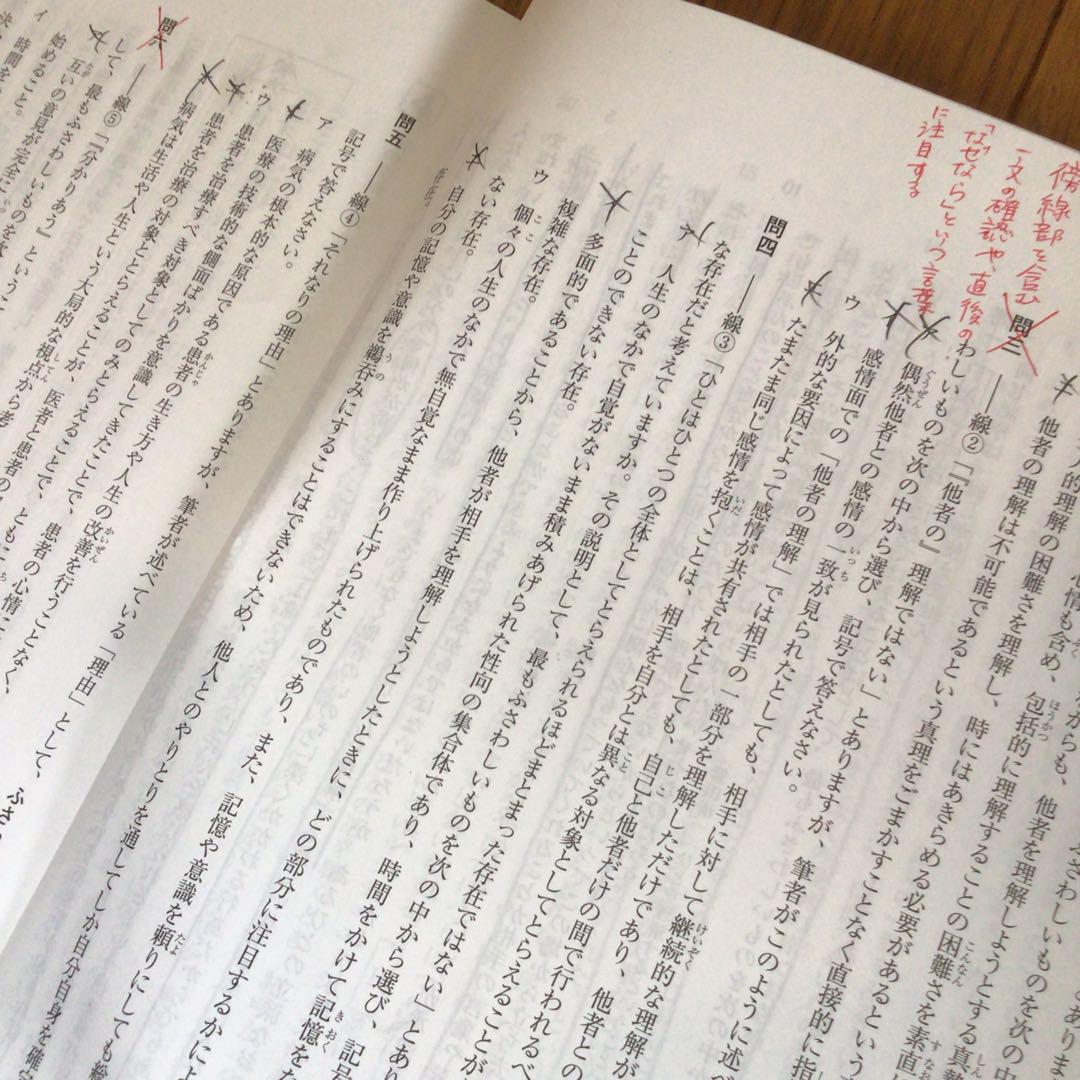 傍線部を含む
一文の確認や、直後の
「なぜなら」という言葉
に注目する
ふさわしいものを次の中
からも、他者を理解しようとする真
心情も含め、包括的に理解することの困難さを素直
人的理解の困難さを理解し、時にはあきらめる必要があるという
他者の理解は不可能であるという真理をごまかすことなく直接的に指
問三 ――線②「『他者の』理解ではない」とありますが、筆者がこのように述べ
わしいものを次の中から選び、記号で答えなさい。
偶然他者との感情の一致が見られたとしても、相手に対して継続的な理解が
感情面での「他者の理解」では相手の一部分を理解しただけであり、他者との
ウ 外的な要因によって感情が共有されたとしても、自己と他者だけの間で行われるべ
たまたま同じ感情を抱くことは、相手を自分とは異なる対象としてとらえることが
問四 ――線③「ひとはひとつの全体としてとらえられるほどまとまった存在ではない」とあり
な存在だと考えていますか。その説明として、最もふさわしいものを次の中から選び、記号
ア 人生のなかで自覚がないまま積みあげられた性向の集合体であり、時間をかけて記憶を
ことのできない存在。
多面的であることから、他者が相手を理解しようとしたときに、どの部分に注目するかによ
複雑な存在。
ウ 個々の人生のなかで無自覚なまま作り上げられたものであり、また、記憶や意識を頼りにしても
ない存在。
自分の記憶や意識を鵜呑みにすることはできないため、他人とのやりとりを通してしか自分自身を確
存在。
問五 ――線④「それなりの理由」とありますが、筆者が述べている「理由」として、ふさわ
記号で答えなさい。
ア 病気の根本的な原因である患者の生き方や人生の改善を行うことなく、
医療の技術的な側面ばかりを意識してきたことで、患者の心情に
ウ 患者を治療すべき対象としてのみとらえることが、医者と患者の
病気は生活や人生という大局的な視点から考
問六 ――線⑤「『分かりあう』ということ
して、最もふさわしいものを次
互いの意見が完全に
始めること。
イ 時間を
決